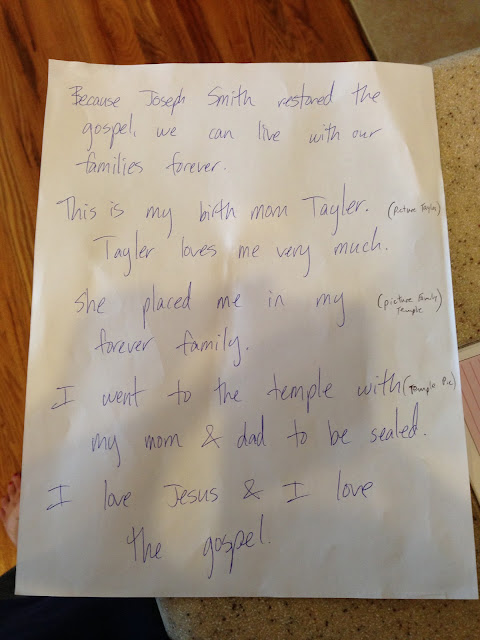 Because Joseph Smith restored the
gospel, we can live with our
families forever.
This is my birth mom Tayler. (Picture Tayler)
Tayler loves me very much.
She placed me in my (picture Family Temple)
forever family.
I went to the temple with (Temple Pic)
my mom & dad to be sealed.
I love Jesus & I love
the gospel.